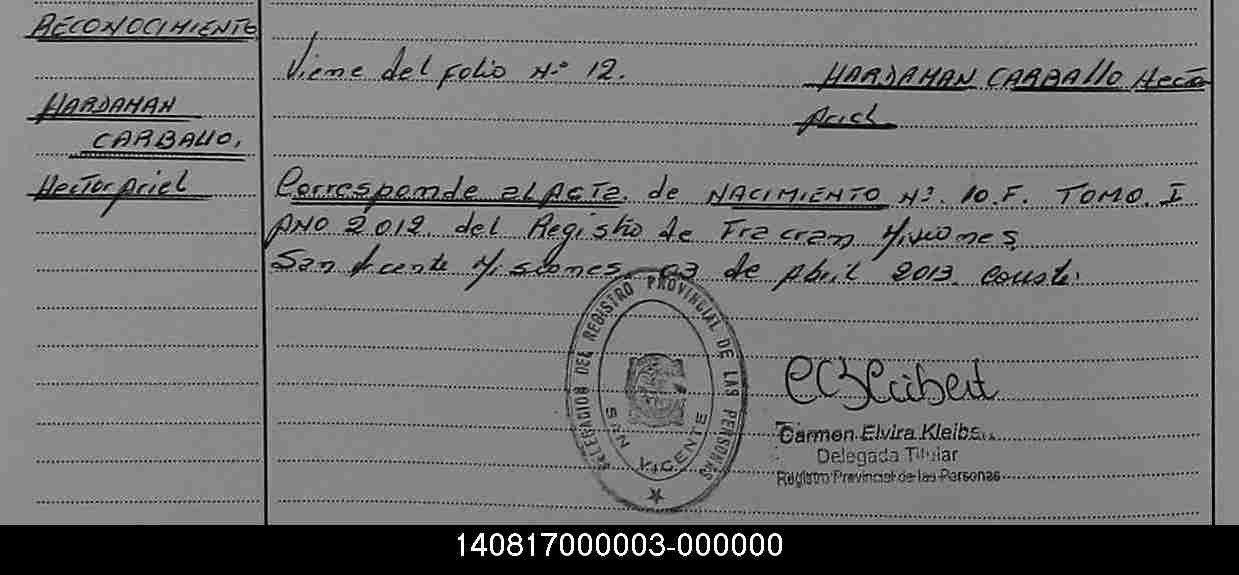 RECONOCIMIENTO
HARDAMAN
CARBALLO,
Hector Ariel
Viene del folio N.º 12.
HARDAMAN CARBALLO Hector
Ariel
Corresponde al ACTA de NACIMIENTO Nº. 10.F. TOMO I
AÑO 2012 del Registro de Fracran Misiones
San Vicente Misiones 03 de Abril 2013. Conste.
DELEGACION DEL REGISTRO PROVINCIAL DE LAS PERSONAS
SAN VICENTE
Carmen Elvira Kleibs
Delegada Titular
Registro Provincial de las Personas
140817000003-000000